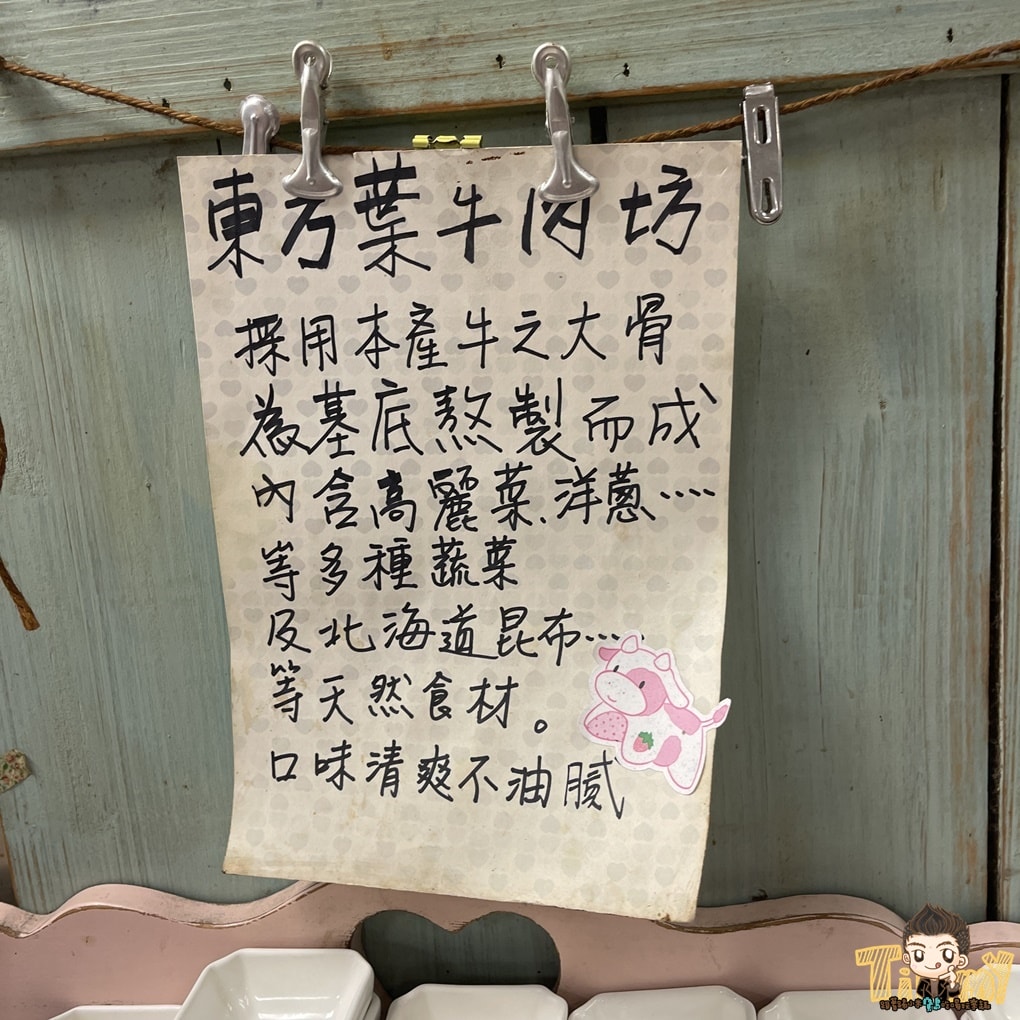 東方葉牛肉坊
採用本產牛之大骨
為基底熬製而成
內含高麗菜、洋蔥‥‥
等多種蔬菜
及北海道昆布‥‥
等天然食材。
口味清爽不油膩